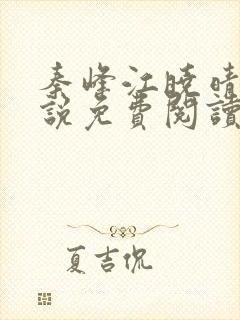 秦峰江晓晴
說免費閱讀
夏吉侃